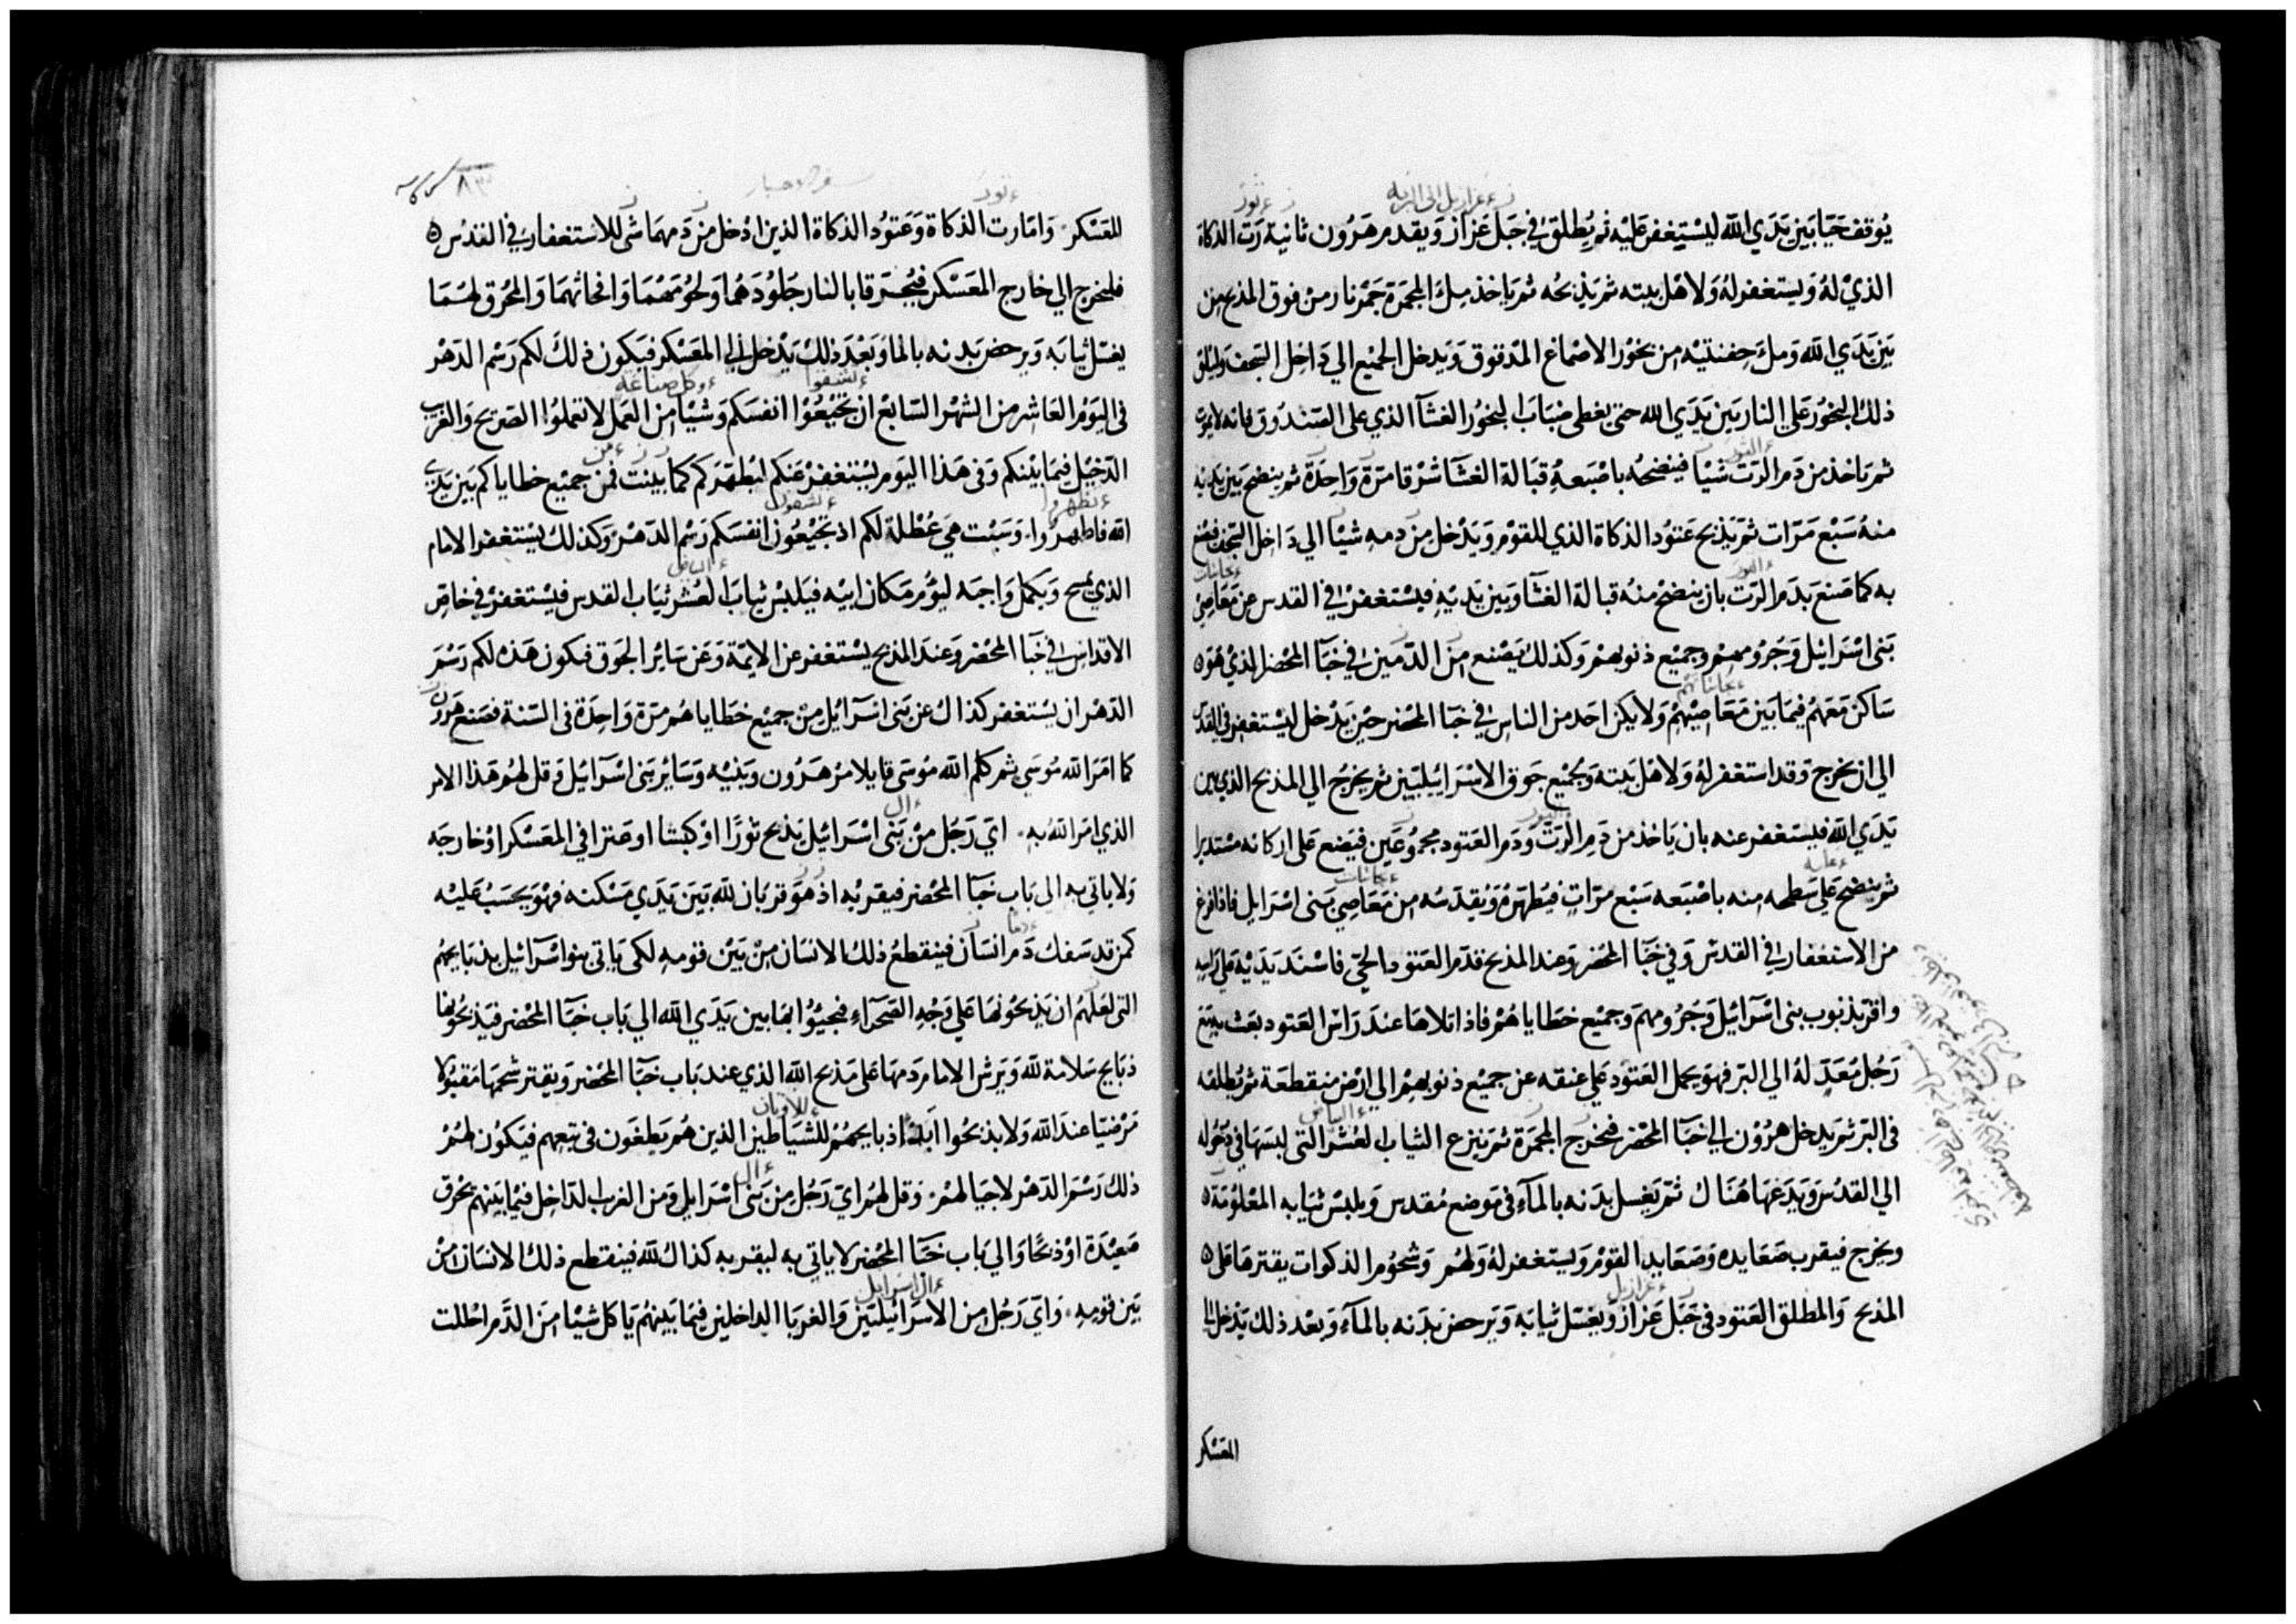 يُوقف حَيّا بَين يَدَي الله ليسْتغفر عَليْه ثم يُطلق في جَبَل عَزاز وَيقدم هَرُون ثانية رَت الذكاة
الذيْ لهُ وَيستغفر لهُ وَلاهْل بيته ثم يَذبحُه ثم يَاخذ مِلءَ المجمرة جَمْر نار من فوق المذبح من
بَين يَدَي الله وَملءَ حفنتَيْه من بخوْر الاصْماغ المدقوق وَيدخل الجميْع الي دَاخِل السجف وَليلق
ذلك البخوْر عَلي النار بَين يَدَي الله حتى يغطى ضبَابَ البخوُر الغشآ الذي على الصَندُوق فانه لا يمُوت
ثم يَاخذ من دَم الرَت شيْا فينضحُه باصْبَعهِ قبَالة الغشآ شرْقا مَرّة وَاحِدَة ثم ينضح بَين يَديْه
منهُ سَبْع مَرّات ثم يَذبح عَتوُد الذكاة الذي للقوْم وَيَدْخل من دمهِ شيْا الي دَاخِل السجف فيصْنع
به كما صَنع بدَم الرَت بان ينضحْ منهُ قبالة الغشآ وَبين يَدَيْهِ فيسْتغفرْ في القدس عن مَعَاصِيْ
بَنى اسْرَائيْل وَجَرُومهمْ وجميْع ذنوبهمْ وَكذلك يَصْنع منَ الدّمَين في خبَآ المحْضر الذيْ هُوَ
سَاكن مَعَهُمْ فيمَا بَين مَعَاصِيْهمْ وَلا يكن احَد من الناس في خبَا المحْضر حيْن يَدْخل ليْستغفِر في القدْس
الي ان يخرج وَقد استغفر لهُ وَلاهْل بَيته وَلجميْع جَوق الاسْرَائيْليّين ثم يخرجُ الي المذبح الذي بين
يَدَي الله فيستغفر عنه بان يَاخذ من دَم الرَتّ وَدَم العَتود مجمُوعَين فيَضع عَلى اركانه مسْتديرا
ثم ينضح عَلي سَطحه منه باصْبَعه سَبْع مرّاتٍ فيُطهّرهُ وَيُقدّسُه من مَعَاصِي بَنى اسْرَايل فاذا فرغ
من الاستغفار في القدسْ وَفي خبَآ المحْضر وَعند المذبح قدّم العَتود الحَيّ فاسْنَد يَدَيْه عَلي رَاسه
واقرّ بذنوب بنى اسْرَائيْل وَجَرُومهمْ وَجميْع خطَاياهُمْ فاذا تلاهَا عندَ رَاسْ العَتود بعَث به مَع
رَجُل مُعَدّ لهُ الي البَر فهوَ يحمل العَتوْد عَلي عنقه عن جميْع ذنوبهمْ الي ارْض منقطعَة ثم يُطلقه
فى البَرّ ثم يَدخل هرُوْن الي خبَآ المحْضر فيخرج المجمرَة ثم يَنزع الثياب العُشرْ التى لبسَهَا في دخُوله
الي القدسْ وَيَدَعْهَا هُنَاك ثم يَغسل بدَنه بالمآءِ في مَوضع مُقدس وَيلبسْ ثيابه المعْلوُمَة
ويخرج فيقرب صَعَايده وَصَعَايد القومْ وَليستغفر لهُ وَلهُم وَشحُوم الذكوات يقترهَا عَلى
المذبح وَالمطلق العَتود فى جَبَل عَزاز وَيغسَل ثيابَه وَيَرحضَ بدَنه بالمآءِ وَبعْد ذلك يَدْخل الي
المعَسْكر
سفر الاحبار
للمعَسْكر وَامّا رت الذكاة وَعَتوُد الذكاة الذين ادْخل من دَمهمَا شي للاستغفار في القدسْ
فليخرج الي خارج المعَسْكر فيُحرَقا بالنار جَلوُدهُما وَلحُومَهُمَا وَافحاثهمَا وَالمحْرق لهُمَا
يغسْل ثيابَه وَيرحض بَدنه بالما وَبعْدَ ذلكْ يَدْخل الي المعَسْكر فيَكون ذلكَ لكم رَسْم الدَهْر
فى اليَوْم العَاشر من الشهْر السَابعْ ان تجيْعُوْا انفسَكم وَشيْا من العَمل لا تعملوُا الصَريح وَالغَريب
الدّخيْل فيمَا بَيْنكم وَفى هَذا اليَوم يسْتغفرْ عَنكم ليُطهّرَكم كما بينت فمن جميْع خطاياكم بَين يَدي
الله فاطهرُوا وَسَبْت هيَ عُطلة لكم اذ تجيْعُون انفسَكم رَسْم الدّهرْ وَكذلك يسْتغفر الامام
الذي يمسح وَيكمل وَاجبَه ليَؤم مَكان ابيْه فيَلبسْ ثيابَ العُشر ثيَاب القدس فيسْتغفرْ في خاصّ
الاقداسْ في خبَآ المحْضر وَعندَ المذبح يسْتغفر عن الايمّة وَعَن سَائر الجَوق فيكون هَذه لكم رَسْمَ
الدّهْر ان يسْتغفر كذاك عن بَنى اسْرَآئيْل من جميْع خَطاياهُم مرّة وَاحِدَة فى السّنة فصَنع هَرون
كما امَرَ الله مُوسَي ثم كلم الله مُوسَى قايلا مرْ هَرُون وَبَنيْه وَسَائر بَنى اسْرَائيْل وَقل لهُم هَذا الامر
الذي امَر اللهُ به ايّ رَجُل منْ بَنى اسْرَائيْل يَذبح ثورًا اوْ كبشا او عَنزا في المعَسْكر اوْ خارجَه
وَلا ياتي به الي بَاب خبَآ المحْضر فيقربْه اذ هوَ قربَان لله بَين يَدَي مَسْكنه فهْوَ يحسَبُ عَليْه
كمن قد سَفك دَم انسَان فينقطعُ ذلك الانسَان مِنْ بَيْن قومهِ لكي يَاتي بنوا اسْرَآئيْل بذبَايحهُم
التى لعَلهُم ان يَذبحُونهَا عَلي وَجْهِ الصَحرَآءِ فيجيْوُا بهَا بين يَدَي الله الي بَاب خبَآ المحْضر فيَذبحُونها
ذبَايح سَلامة لله وَيَرش الامام دَمهَا عَلى مَذبح الله الذي عند بَاب خبَآ المحْضر وَيقتر شحمهَا مَقبُولا
مَرْضيّا عندَ الله وَلا يذبحُوا ابَدا ذبايحهُمْ للشيَاطين الذين هُم يَطغَون فى تبَعهم فيَكوُن لهُمْ
ذلك رَسْمَ الدَهْر لاجيَالهمْ وَقل لهُم ايّ رَجُل من بَنى اسْرَايل وَمن الغرب الدَاخِل فيمَا بَينهم يحْرق
صَعيْدَة اوْ ذبحًا وَالي بَاب خبَآ المحْضر لا ياتي به ليقربه كذاك لله فينقطع ذلك الانسَان منْ
بَين قومِه وَايّ رَجُل من الاسرَائيْليّين وَالغربَا الداخلين فيمَا بَينهُم يَاكل شيْا منَ الدَّم احْللت